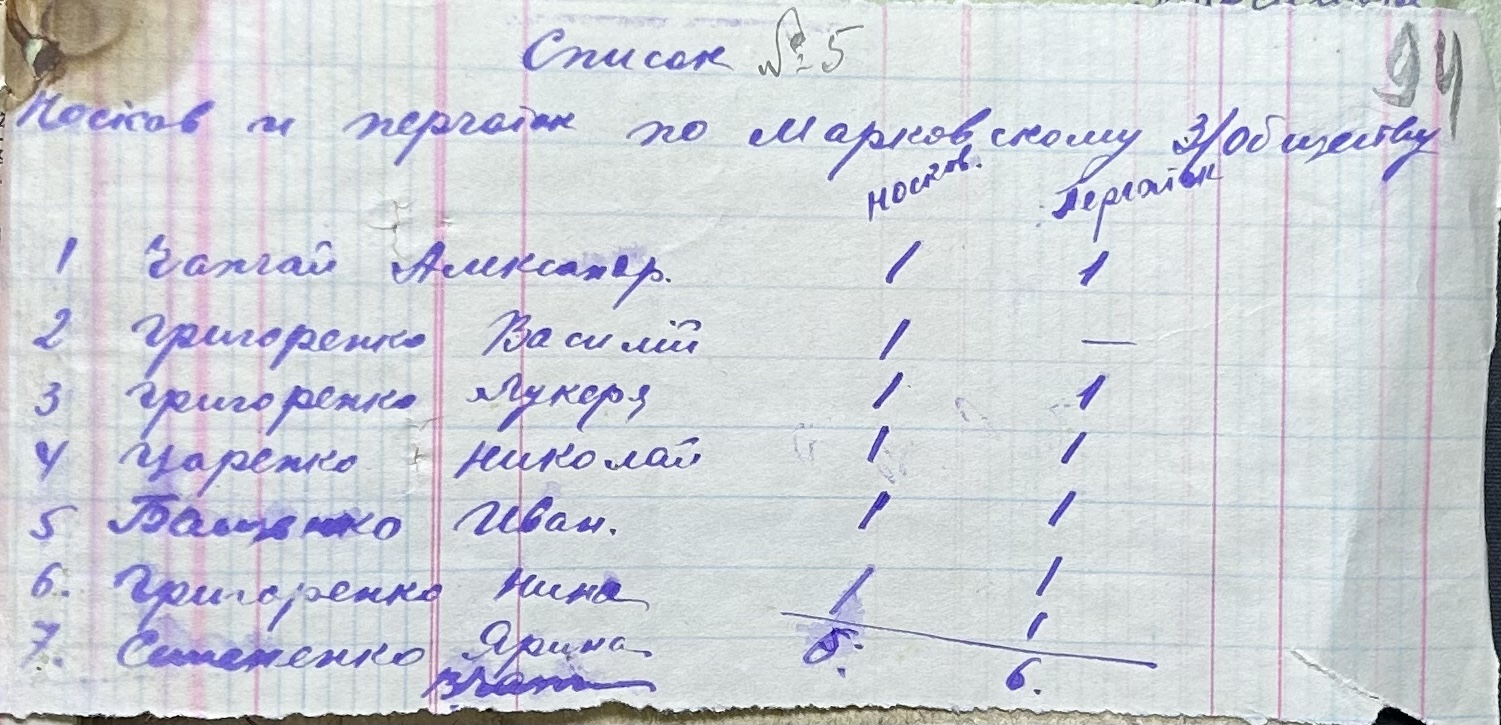 Список №5
94
Носков и перчаток по Марковскому З/обществу
носков. перчаток
1 Чапгай Александр. 1 1
2 Григоренко Василий 1 —
3 Григоренко Лукеря 1 1
4 Царенко Николай 1 1
5 Иван. 1 1
6. Григоренко Нина 1 1
7. Семененко Ярина 1
6.